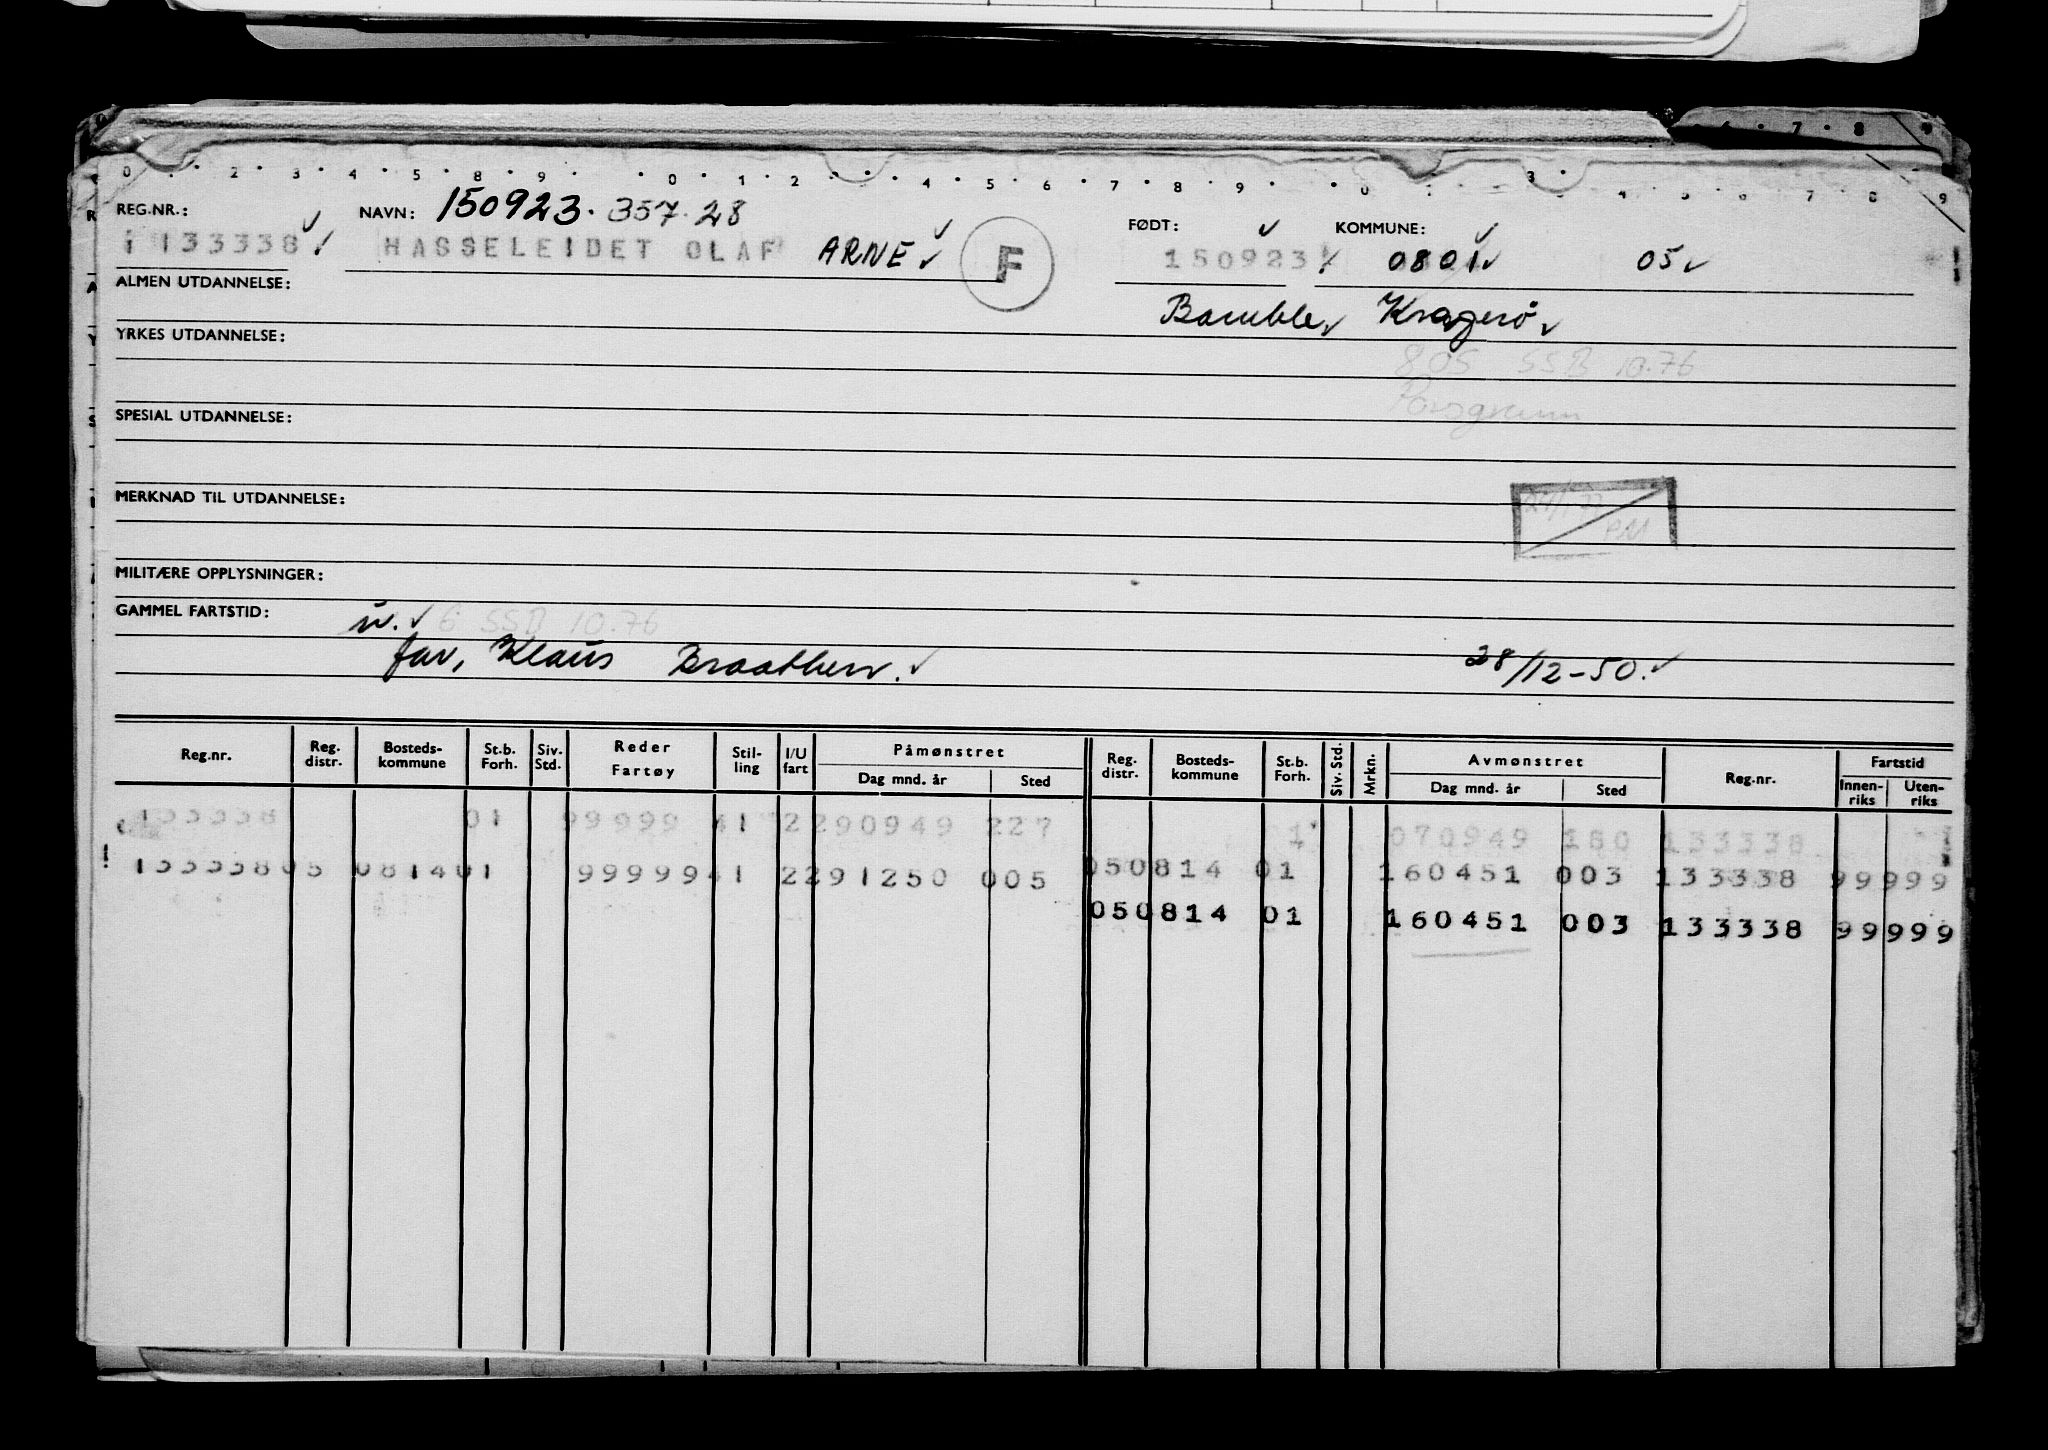 6 · 7 · 8 · 9
0 · 2 · 3 · 4 · 5 · 8 · 9 · · 0 · 1 · 2 · · 4 · 5 · 6 · 7 · 8 · 9 · · 0 3 · 4 5 6 7 8 9
REG.NR.: NAVN: 150923. 357.28 FØDT: KOMMUNE:
1 133338 HASSELEIDET OLAF ARNE F 150923 0801 05
ALMEN UTDANNELSE: Bamble Kragerø
YRKES UTDANNELSE:
805 SSB 10.76
Porsgrunn
SPESIAL UTDANNELSE:
MERKNAD TIL UTDANNELSE:
MILITÆRE OPPLYSNINGER:
GAMMEL FARTSTID: u. 6 SSB 10.76
far, Klaus Braathen. 28/12-50.
Reg.nr. Reg. distr. Bosteds-kommune St.b. Forh. Siv. Std. Reder Fartøy Stil-ling I/U fart Påmønstret Dag mnd. år Sted Reg. distr. Bosteds-kommune St.b. Forh. Siv. Std. Mrkn. Avmønstret Dag mnd. år Sted Reg.nr. Fartstid Innen-riks Uten-riks
133338 01 99999 41 2 290949 227 1 070949 180 133338
133338 05 0814 01 99999 41 2 291250 005 05 0814 01 160451 003 133338 99 999
05 0814 01 160451 003 133338 99 999